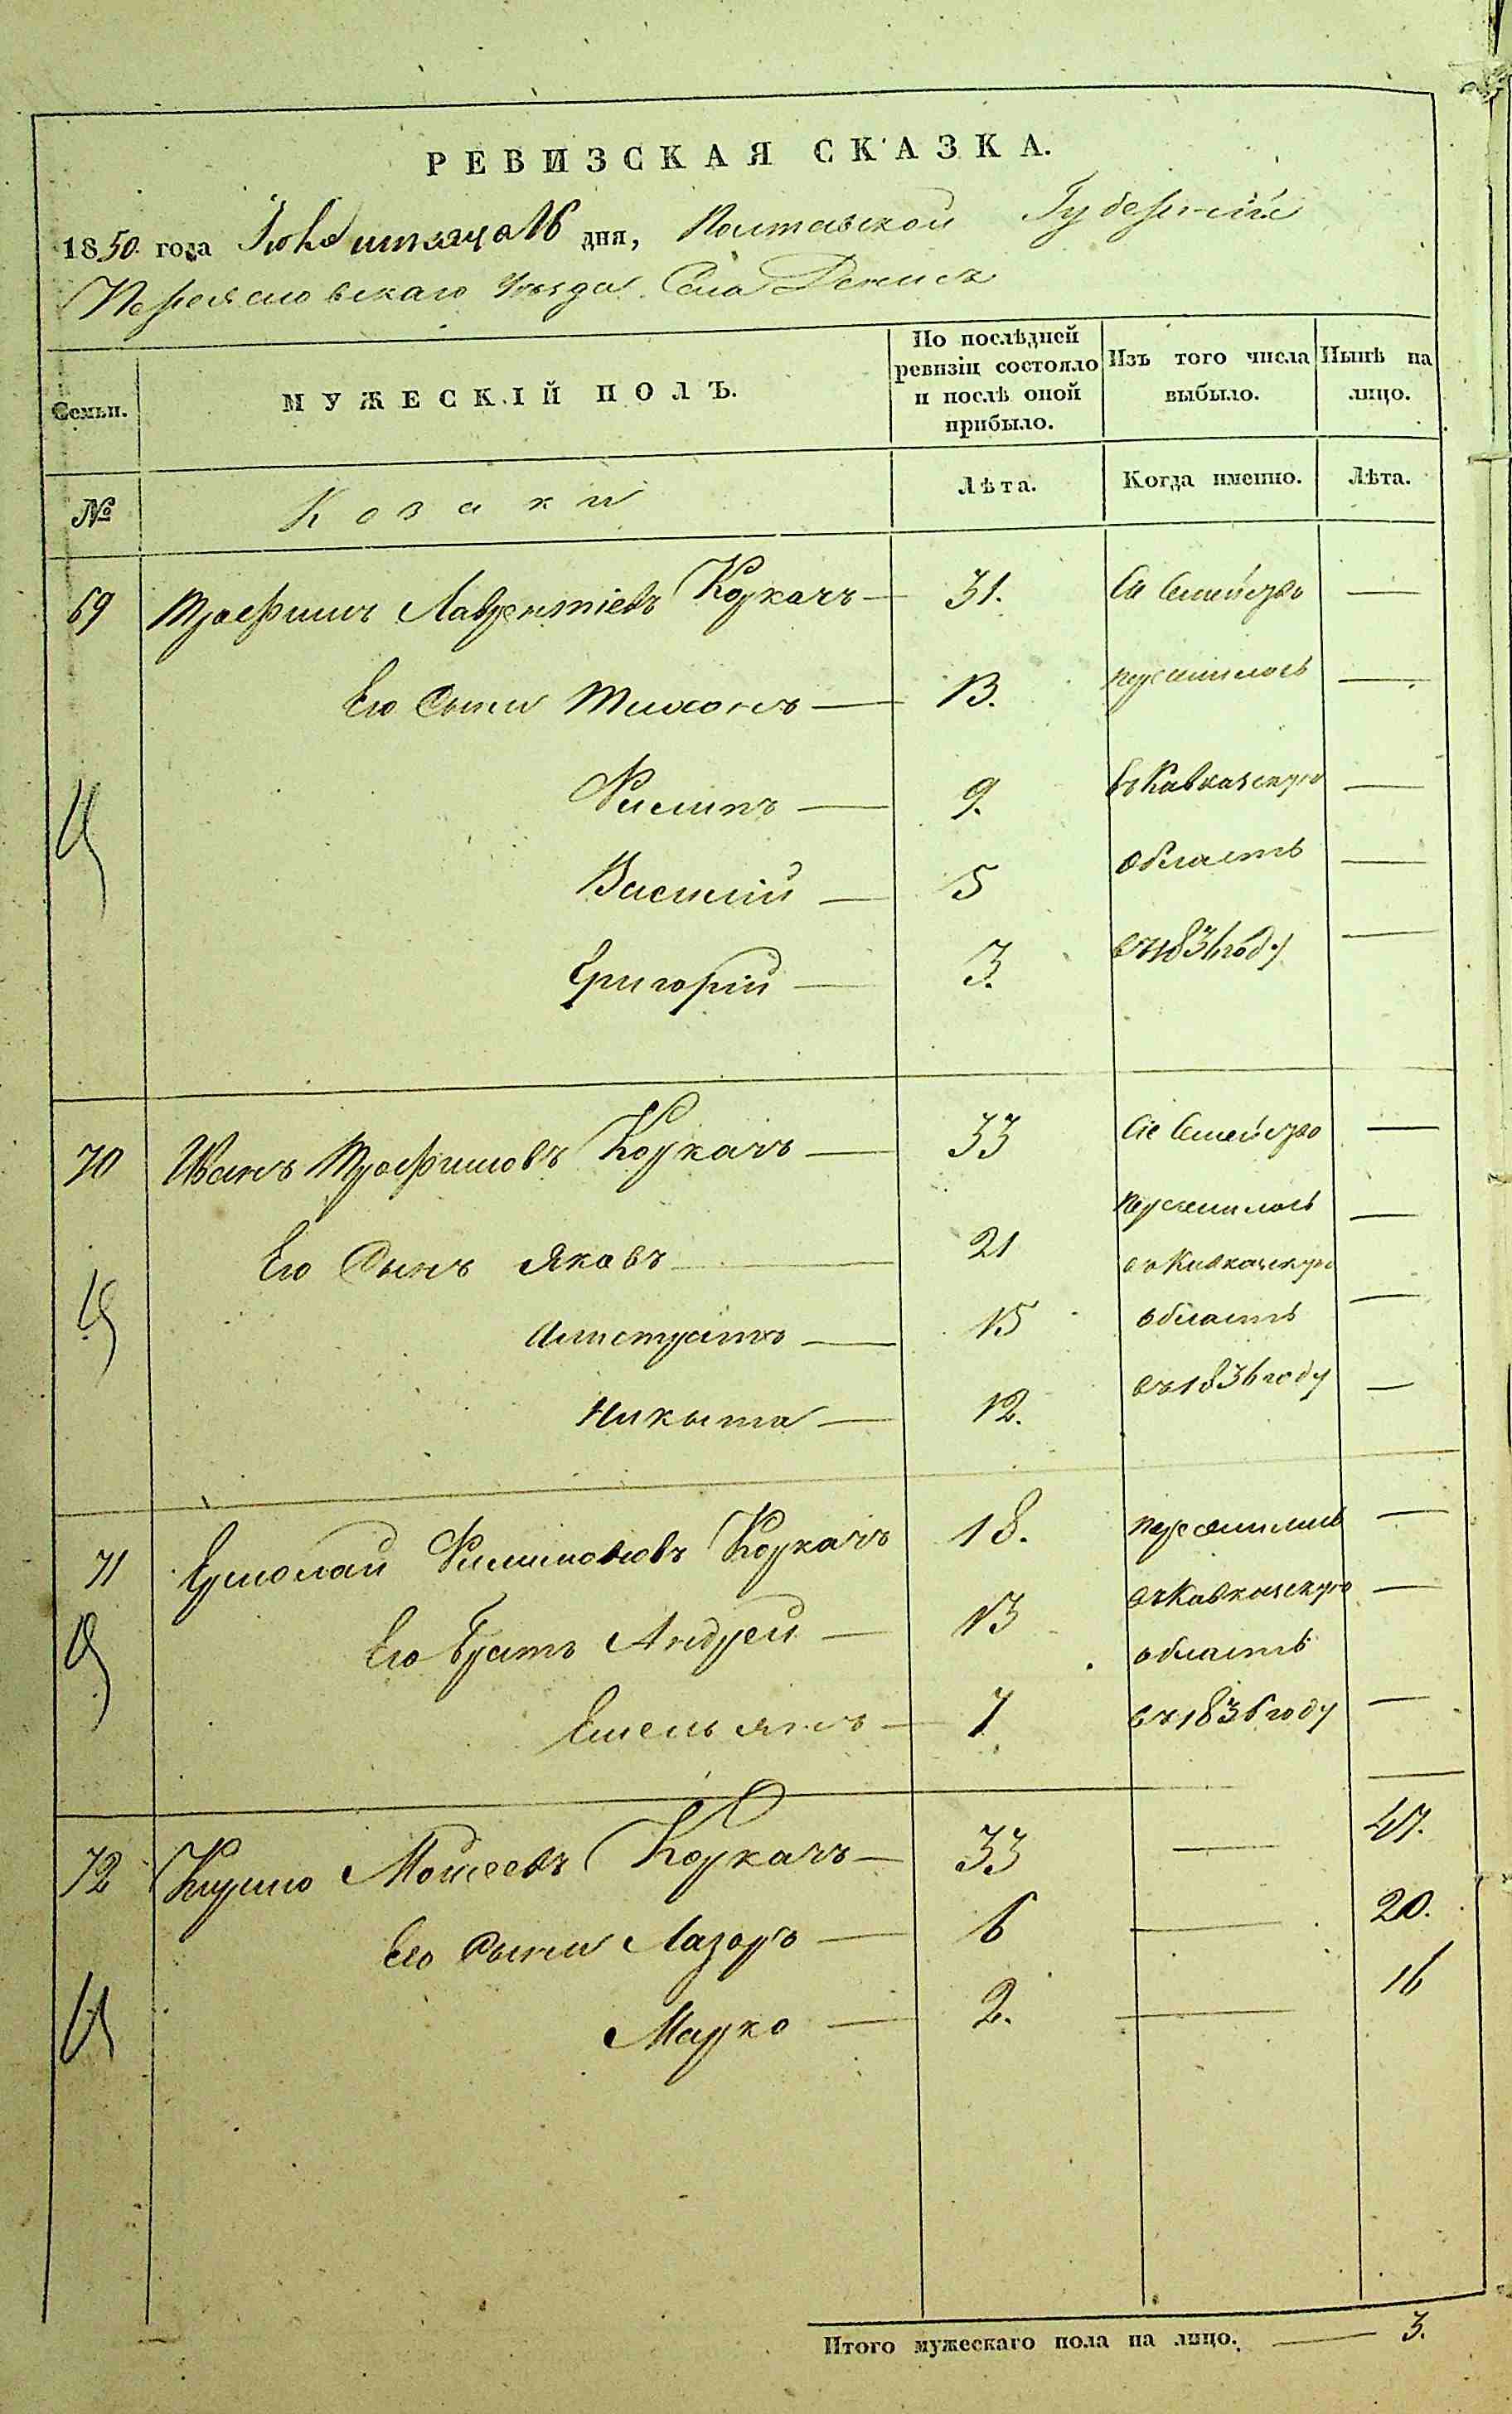 РЕВИЗСКАЯ СКАЗКА.
1850 года мѣсяца 16 дня, Полтавской Губерніи
Переяславскаго Уѣзда Села Денисъ
Семьи.
МУЖЕСКІЙ ПОЛЪ.
По послѣдней ревизіи состояло и послѣ оной прибыло.
Изъ того числа выбыло.
Нынѣ на лицо.
№
Козаки
Лѣта.
Когда именно.
Лѣта.
69 Трофимъ Лаврентіевъ Коркачъ — 31. Сіе Семейство —
Его Сыны Тихонъ — 13. переселилось —
Филипъ — 9. въ Кавказскую —
Василій — 5 область —
Григорій — 3. въ 1836 году —
70 Иванъ Трофимовъ Коркачъ — 33 Сіе Семейство —
переселилось
Его Сынъ Яковъ — 21 въ Кавказскую —
Алистратъ — 15 область —
Никыта — 12. въ 1836 году —
71 Ермолай Филимоновъ Коркачъ 18. переселились —
Его Братъ Андрей — 13 въ Кавказскую —
область
Емельянъ — 7 въ 1836 году —
72 Моисеевъ Коркачъ — 33 — 47.
Его Сыны Лазоръ — 6 — 20.
Марко — 2. — 16
Итого мужескаго пола на лицо. — 3.